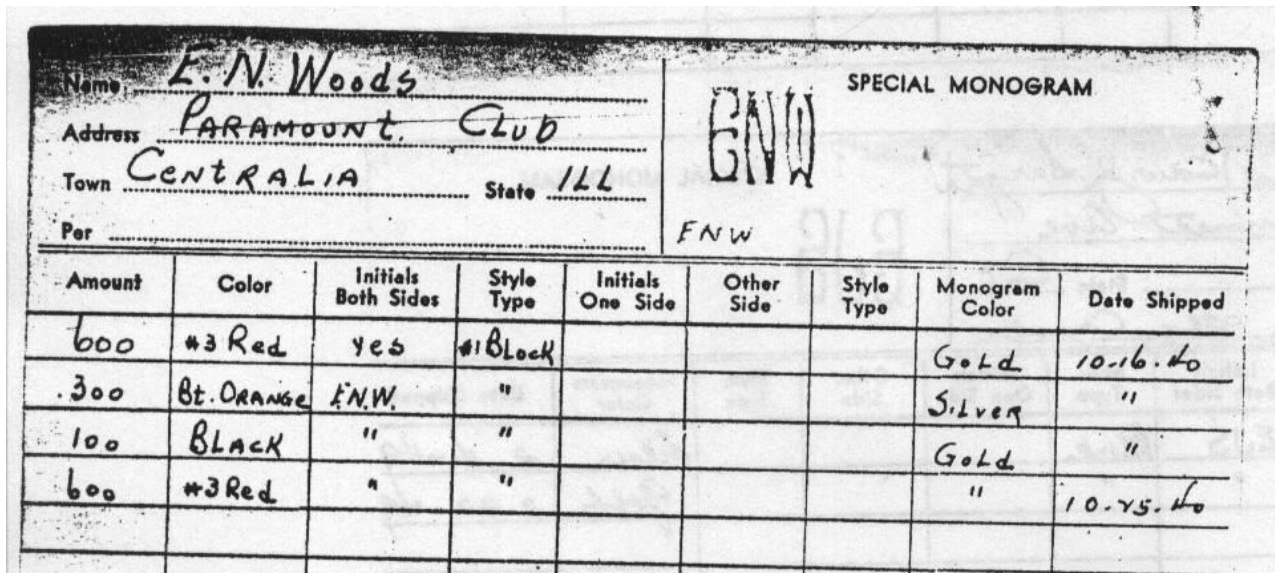 Name E. N. Woods
SPECIAL MONOGRAM
ENW
Address PARAMOUNT. CLUB
Town CENTRALIA State ILL
Per
ENW
Amount Color Initials Both Sides Style Type Initials One Side Other Side Style Type Monogram Color Date Shipped
600 #3 Red yes #1 BLock Gold 10.16.40
300 Bt. ORANGE E.N.W. " SiLVER "
100 BLACK " " GoLd "
600 #3 Red " " " 10.25.40